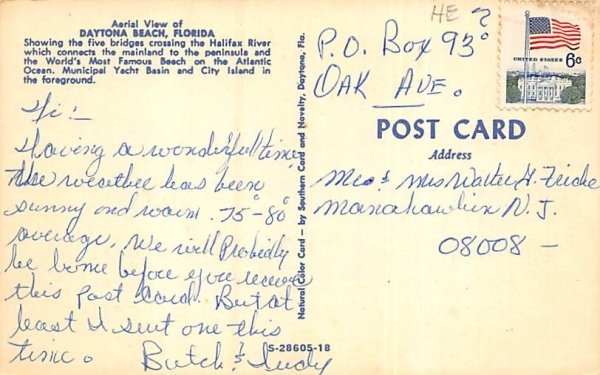 Aerial View of
DAYTONA BEACH, FLORIDA
Showing the five bridges crossing the Halifax River
which connects the mainland to the peninsula and
the World's Most Famous Beach on the Atlantic
Ocean. Municipal Yacht Basin and City Island in
the foreground.
Hi :-
Having a wonderful time
The weather has been
sunny and warm. 75°-80°
average, We will Probably
be home before you receive
this post card. But at
least I sent one this
time.
Butch & Judy
S-28605-18
Natural Color Card — by Southern Card and Novelty, Daytona, Fla.
HE ?
P.O. Box 93°
OAK AVE.
UNITED STATES
6c
POST CARD
Address
Mr & Mrs Walter
Manahawkin N. J.
08008 -